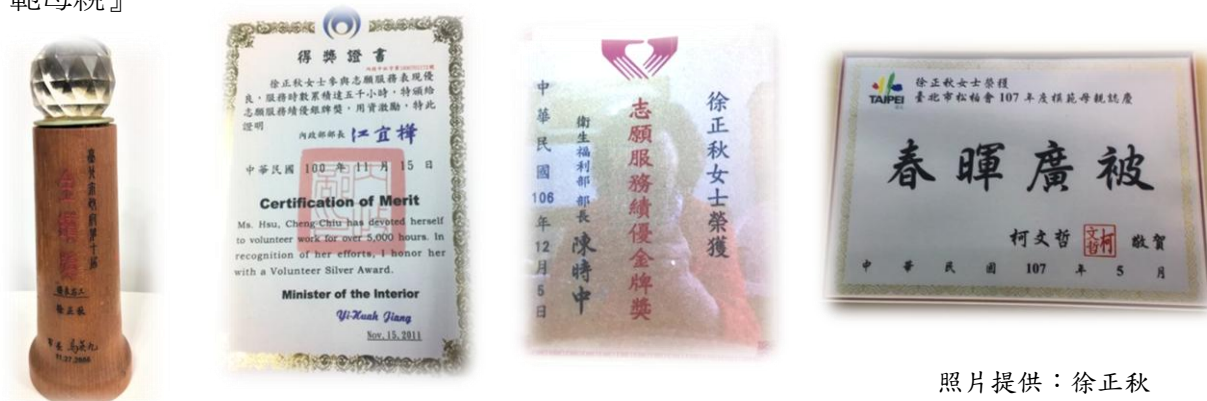 範母親』
臺北市政府第十屆
金鑽獎
徐正秋
市長 馬英九
得獎證書
徐正秋女士參與志願服務表現優
良，服務時數累積達五千小時，特頒給
志願服務績優銀牌獎，用資激勵，特此
證明
內政部部長 江宜樺
中華民國 100 年 11 月 15 日
Certification of Merit
Ms. Hsu, Cheng-Chiu has devoted herself
to volunteer work for over 5,000 hours. In
recognition of her efforts, I honor her
with a Volunteer Silver Award.
Minister of the Interior
Yi-Huah Jiang
Nov.15.2011
徐正秋女士榮獲
志願服務績優金牌獎
衛生福利部 部長 陳時中
中華民國106年12月5日
TAIPEI
徐正秋女士榮獲
臺北市松柏會 107 年度模範母親誌慶
春暉廣被
柯文哲 敬賀
中 華 民 國 107 年 5 月
照片提供：徐正秋